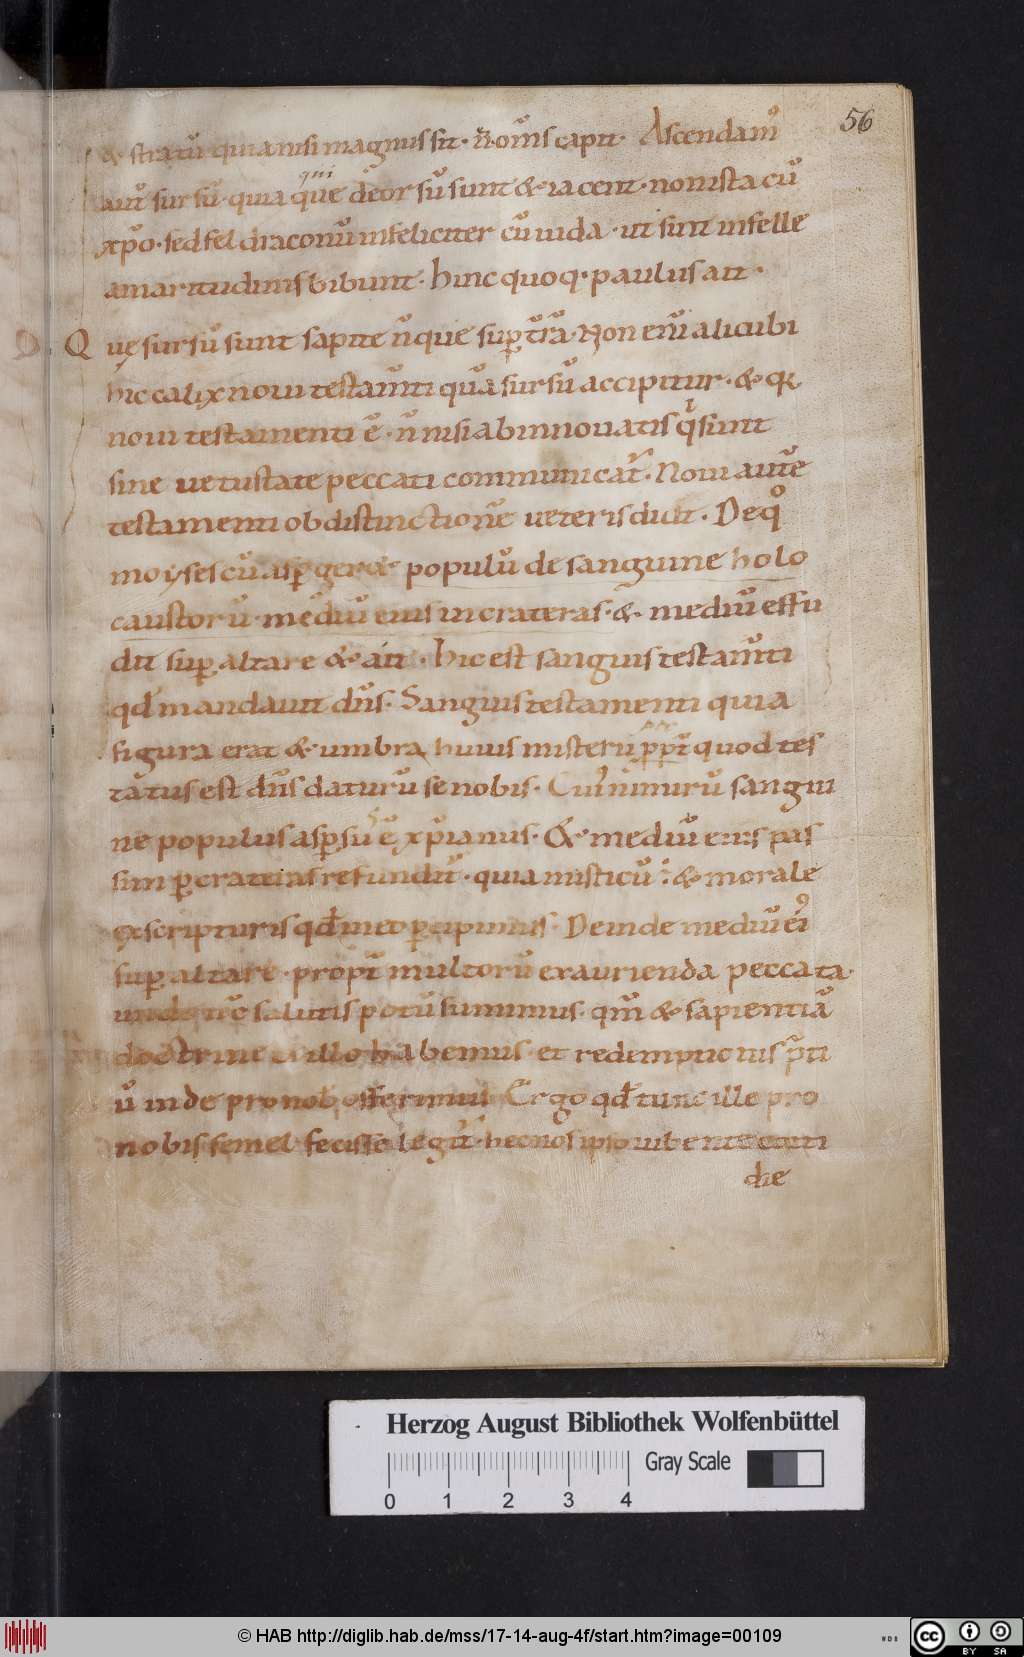 56
& stratū quia nisi magnus sit · n̄ om̄s capit · Ascendam᾿
qui
aut̄ sursū · quia que deorsū sunt & iacent · non ista cū
xp̄o · sed fel draconū infeliciter cū iuda · ut sunt in felle
amaritudinis bibunt · hinc quoq· paulus ait ·
Quę sursū sunt sapite n̄ que sup̲ t̄rā · Non enī alicubi
hic calix noui testam̄ti quā sursū accipitur · &
noui testamenti ē · n̄ nisi ab innouatis qͥ sunt
sine uetustate peccati communicat᾿ · Noui autē
testamenti ob distinctionē ueteris dixit · De qͦ
moyses cū asp̲ger& populū de sanguine holo
caustorū · mediū eius in crateras · & mediū effu
dit sup̲ altare & ait · hic est sanguis testam̄ti
qđ mandauit dn̄s · Sanguis testamenti quia
figura erat & umbra huius misterii p̲p̲t̄ quod tes
tatus est dn̄s daturū se nobis · Cui᾿ nimirū sangui
ne populus asp̲sus ē xp̄ianus · & mediū eius pas
sim p̲ crateras refundit · quia misticū & morale
ex scripturis qđ in eo p̲cipimus · Deinde mediū ei᾿
sup̲ altare · propt̄ multorū exaurienda peccata ·
unde salutis potū sumimus · qm̄ & sapientiā
doctrine illo habemus · et redemptionis p̄ti
ū inde pro nob offerimus · Ergo qđ tunc ille pro
nobis semel fecisse legit᾿ · hec nos ipso iubente coti
die
Herzog August Bibliothek Wolfenbüttel
Gray Scale
0 1 2 3 4
© HAB http://diglib.hab.de/mss/17-14-aug-4f/start.htm?image=00109
WDB
cc BY SA